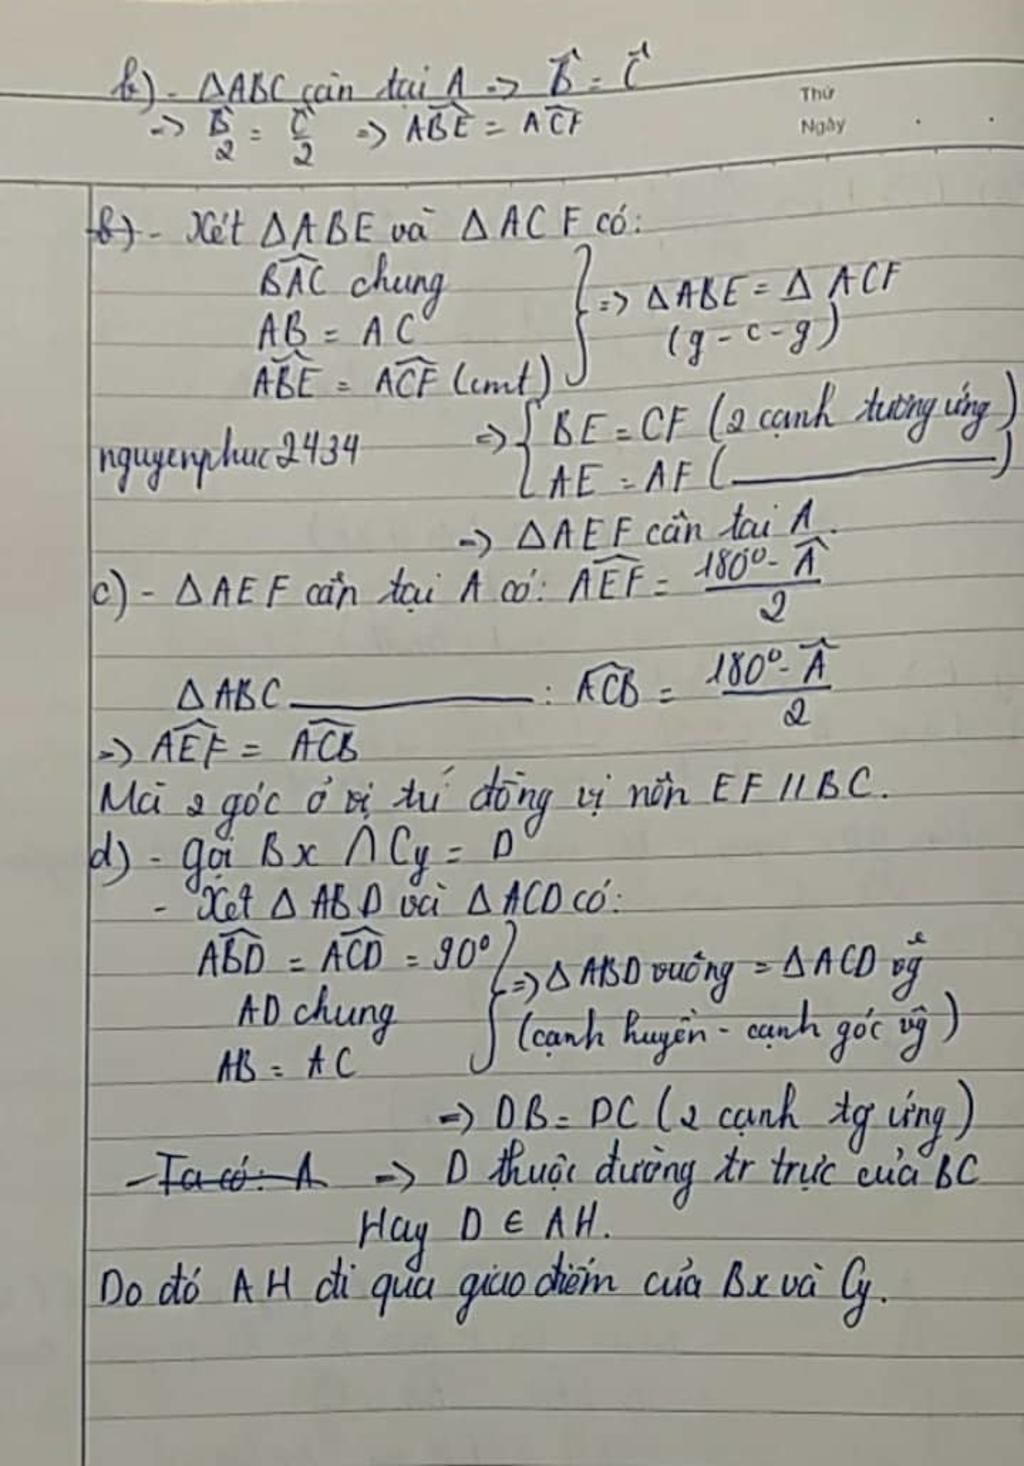 b) - ΔABC cân tại A => B̂ = Ĉ
Thứ
=> B̂/2 = Ĉ/2 => ABE^ = ACF^
Ngày
b) - Xét ΔABE và ΔACF có:
BAC^ chung
AB = AC
ABE^ = ACF^ (cmt)
} => ΔABE = ΔACF
(g-c-g)
=> { BE = CF (2 cạnh tương ứng)
nguyenphuc2434
AE = AF (________)
=> ΔAEF cân tại A.
c) - ΔAEF cân tại A có: AEF^ = (180° - Â)/2
ΔABC ________ : ACB^ = (180° - Â)/2
=> AEF^ = ACB^
Mà 2 góc ở vị trí đồng vị nên EF // BC.
d) - Gọi Bx ∩ Cy = D
- Xét ΔABD và ΔACD có:
ABD^ = ACD^ = 90°
AD chung
AB = AC
} => ΔABD vuông = ΔACD vg
(cạnh huyền - cạnh góc vg)
=> DB = DC (2 cạnh tg ứng)
- Ta có: A => D thuộc đường tr trực của BC
Hay D ∈ AH.
Do đó AH đi qua giao điểm của Bx và Cy.